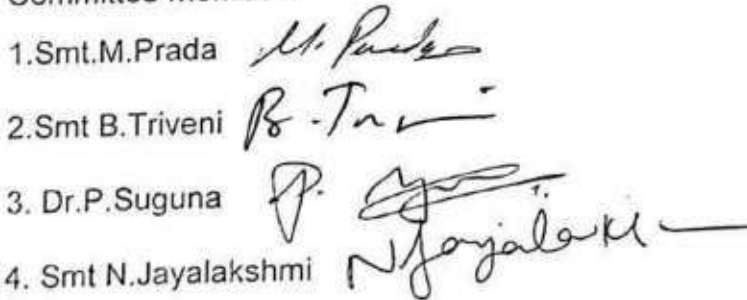 1.Smt.M.Prada M. Prada
2.Smt B.Triveni B. Tri
3. Dr.P.Suguna P.
4. Smt N.Jayalakshmi NJayalaksh